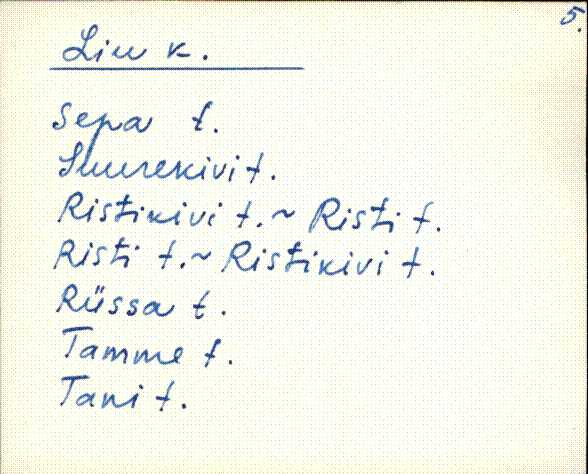 5.
Liu k.
Sepa t.
Suurekivi t.
Ristikivi t. ~ Risti t.
Risti t. ~ Ristikivi t.
Rüssa t.
Tamme t.
Tani t.